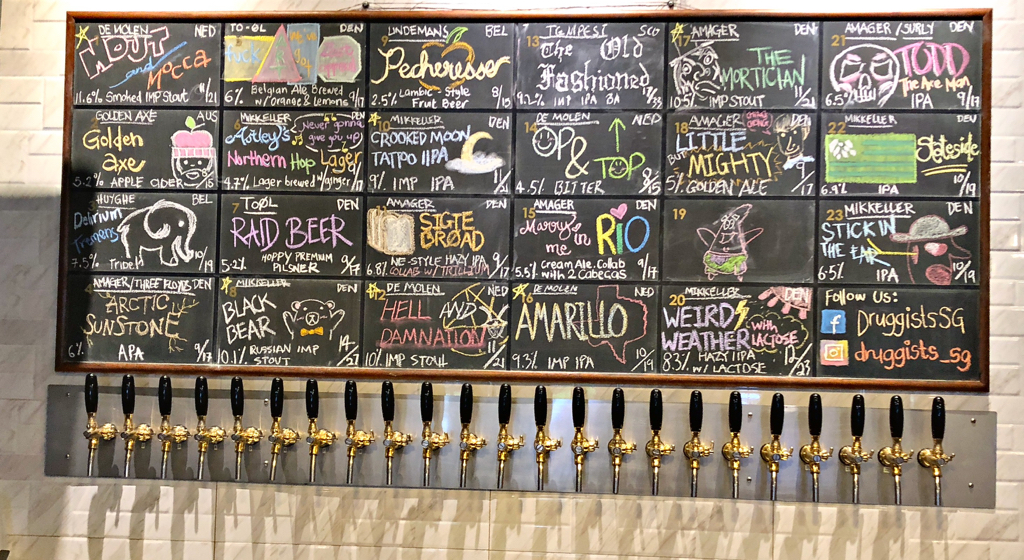 DE MOLEN NED
MOUT
and
Mocca
11.6% Smoked IMP Stout /21
TO-ØL DEN
6% Belgian Ale Brewed
w/ orange & Lemons 9/17
9 LINDEMANS BEL
Pecheresse
2.5% Lambic Style
Fruit Beer 8/15
13 TEMPEST SCO
The Old
Fashioned
9.2% IMP IPA BA
17 AMAGER DEN
THE
MORTICIAN
10.5% IMP STOUT
AMAGER / SURLY DEN
21 TODD
The Axe Man
6.5% IPA 9/17
GOLDEN AXE AUS
Golden
axe
5.2% APPLE CIDER
MIKKELLER DEN
Astley's Never gonna
give you up
Northern Hop Lager
4.7% Lager brewed w/ginger /17
10 MIKKELLER DEN
CROOKED MOON
TATTOO IIPA
9% IMP IPA 11/21
14 DE MOLEN NED
OP &
TOP
4.5% BITTER 8/15
18 AMAGER DEN
LITTLE
BUT
MIGHTY
5% GOLDEN ALE /17
22 MIKKELLER DEN
Stateside
6.9% IPA 10/19
3 HUYGHE BEL
Delirium
Tremens
7.5% Tripel 10/19
7 TOØL DEN
RAID BEER
5.2% HOPPY PREMIUM
PILSNER 9/17
AMAGER DEN
SIGTE
BRØAD
NE-STYLE HAZY IPA
6.8% COLAB W/ TRILLIUM 9/17
15 AMAGER DEN
Marry in
me
RIO
5.5% Cream Ale. Collab
with 2 Cabecas 9/17
19
23 MIKKELLER DEN
STICK IN
THE EAR
6.5% IPA 10/19
4 AMAGER/THREE FLOYDS DEN
ARCTIC
SUNSTONE
6% APA 9/17
8 MIKKELLER DEN
BLACK
BEAR
10.1% RUSSIAN IMP
STOUT 14/27
12 DE MOLEN NED
HELL AND
DAMNATION
10% IMP STOUT 11/21
16 DE MOLEN NED
AMARILLO
9.3% IMP IPA 10/19
20 MIKKELLER DEN
WEIRD
WEATHER With
LACTOSE
8.3% HAZY IIPA
w/ LACTOSE 12/23
Follow Us:
f DruggistsSG
druggists_sg